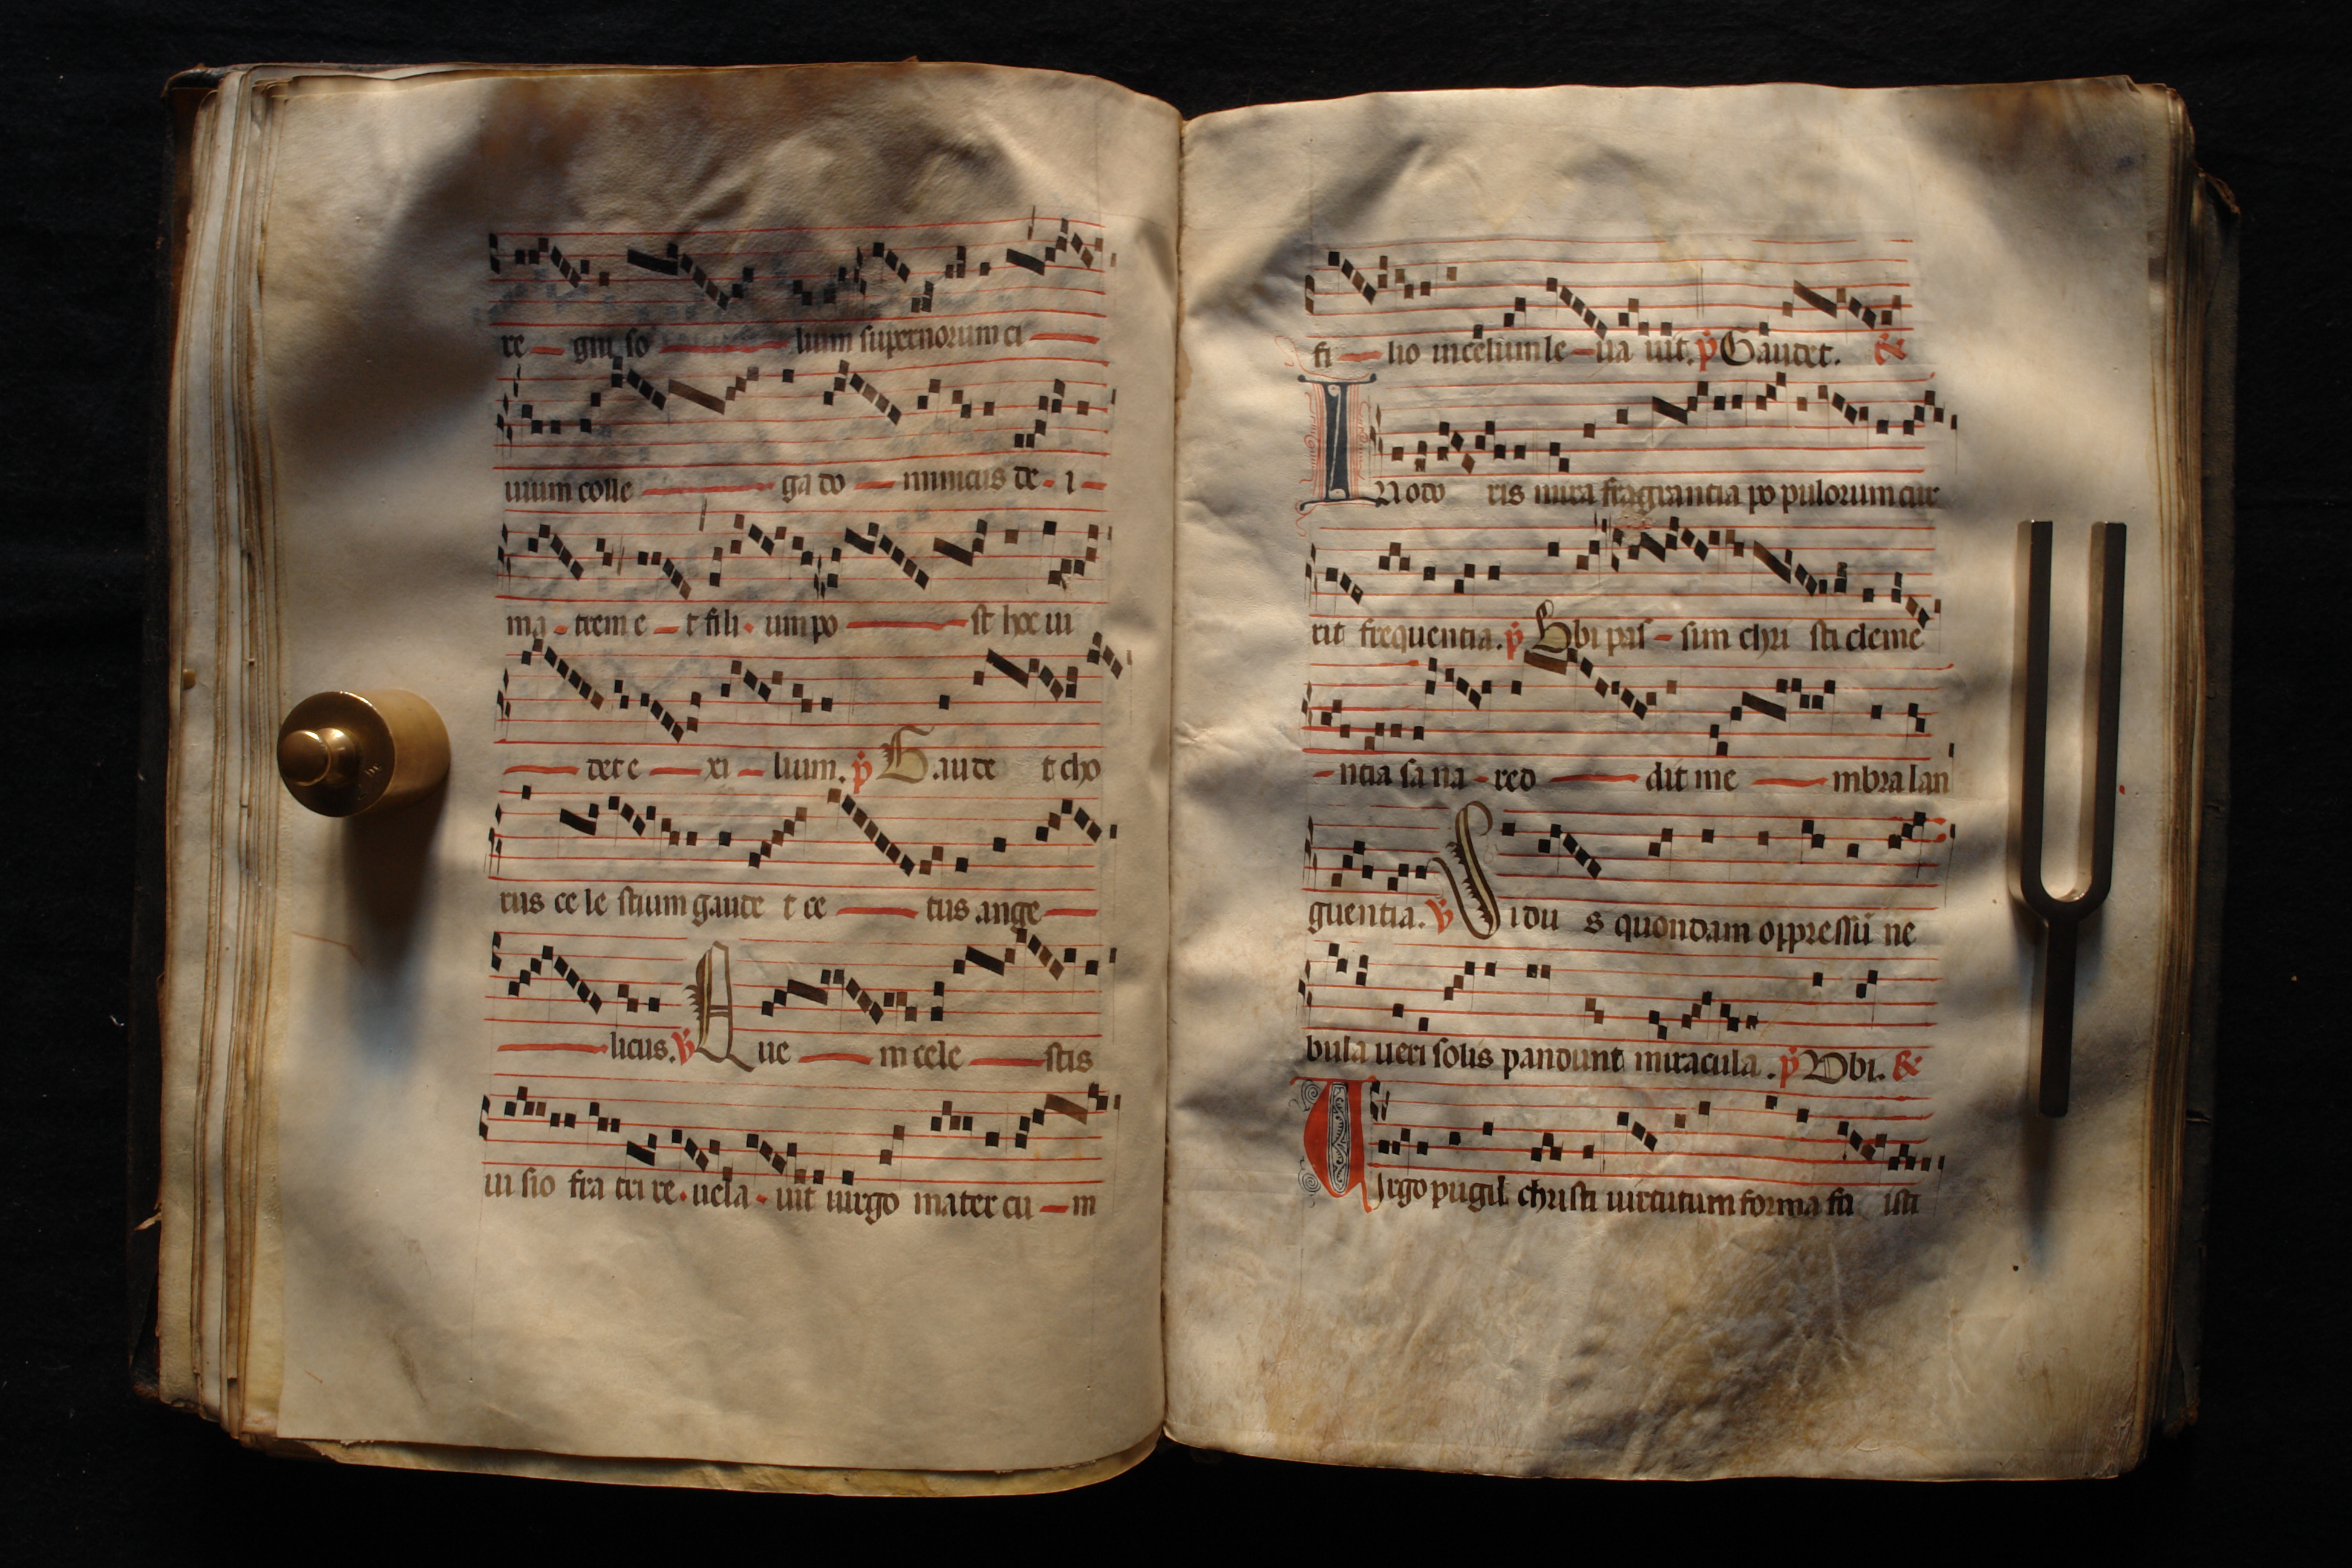 re gni so lium supernorum ci
uium colle ga do minicus de i
ma trem e t fili um po st hoc ui
det e xi lium. p̄ Gaude t cho
rus ce le stium gaude t ce tus ange
licus. v̄ Que m cele stis
ui sio fra tri re uela uit uirgo mater cu m
fi lio in celum le ua uit. p̄ Gaudet. &
Inodo ris mira fragrantia po pulorum cur
rit frequentia. p̄ Vbi pas sim chri sti cleme
ntia sa na red dit me mbra lan
guentia. v̄ Sidu s quondam oppressū ne
bula ueri solis pandunt miracula. p̄ Vbi. &
Uirgo pugil christi uirtutum forma fu isti